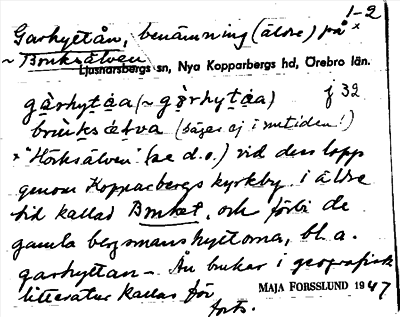 1-2
Garhyttån, benämning (äldre) på x
~ Bruksälven
Ljusnarsbergs sn, Nya Kopparbergs hd, Örebro län.
gàrhytåa (~ gàrhytåa) f 32
brùksälva (säges ej i nutiden!)
x "Hörksälven" (se d.o.) vid dess lopp
genom Kopparbergs kyrkby i äldre
tid kallad Bruket, och förbi de
gamla bergsmanshyttorna, bl.a.
garhyttan - Ån brukar i geografisk
litteratur kallas för
forts.
MAJA FORSSLUND 1947